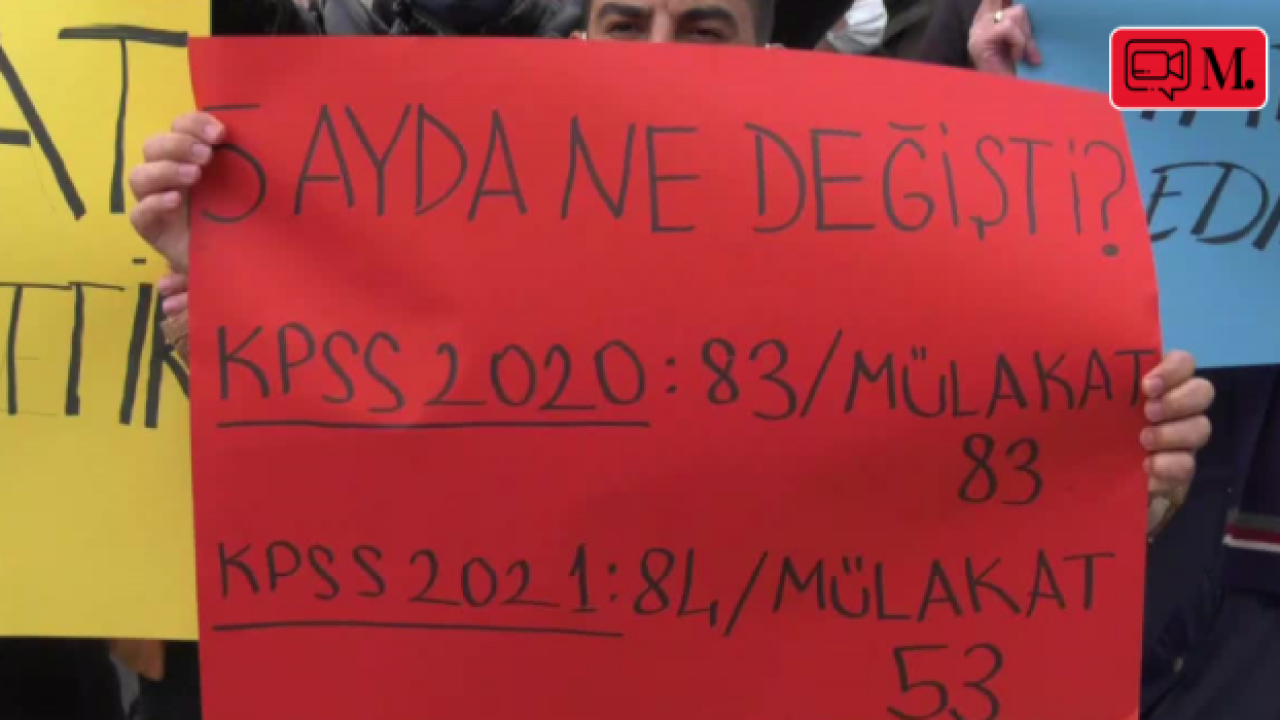 5 AYDA NE DEĞİŞTİ?
KPSS 2020: 83/MÜLAKAT
83
KPSS 2021: 84/MÜLAKAT
53
M.